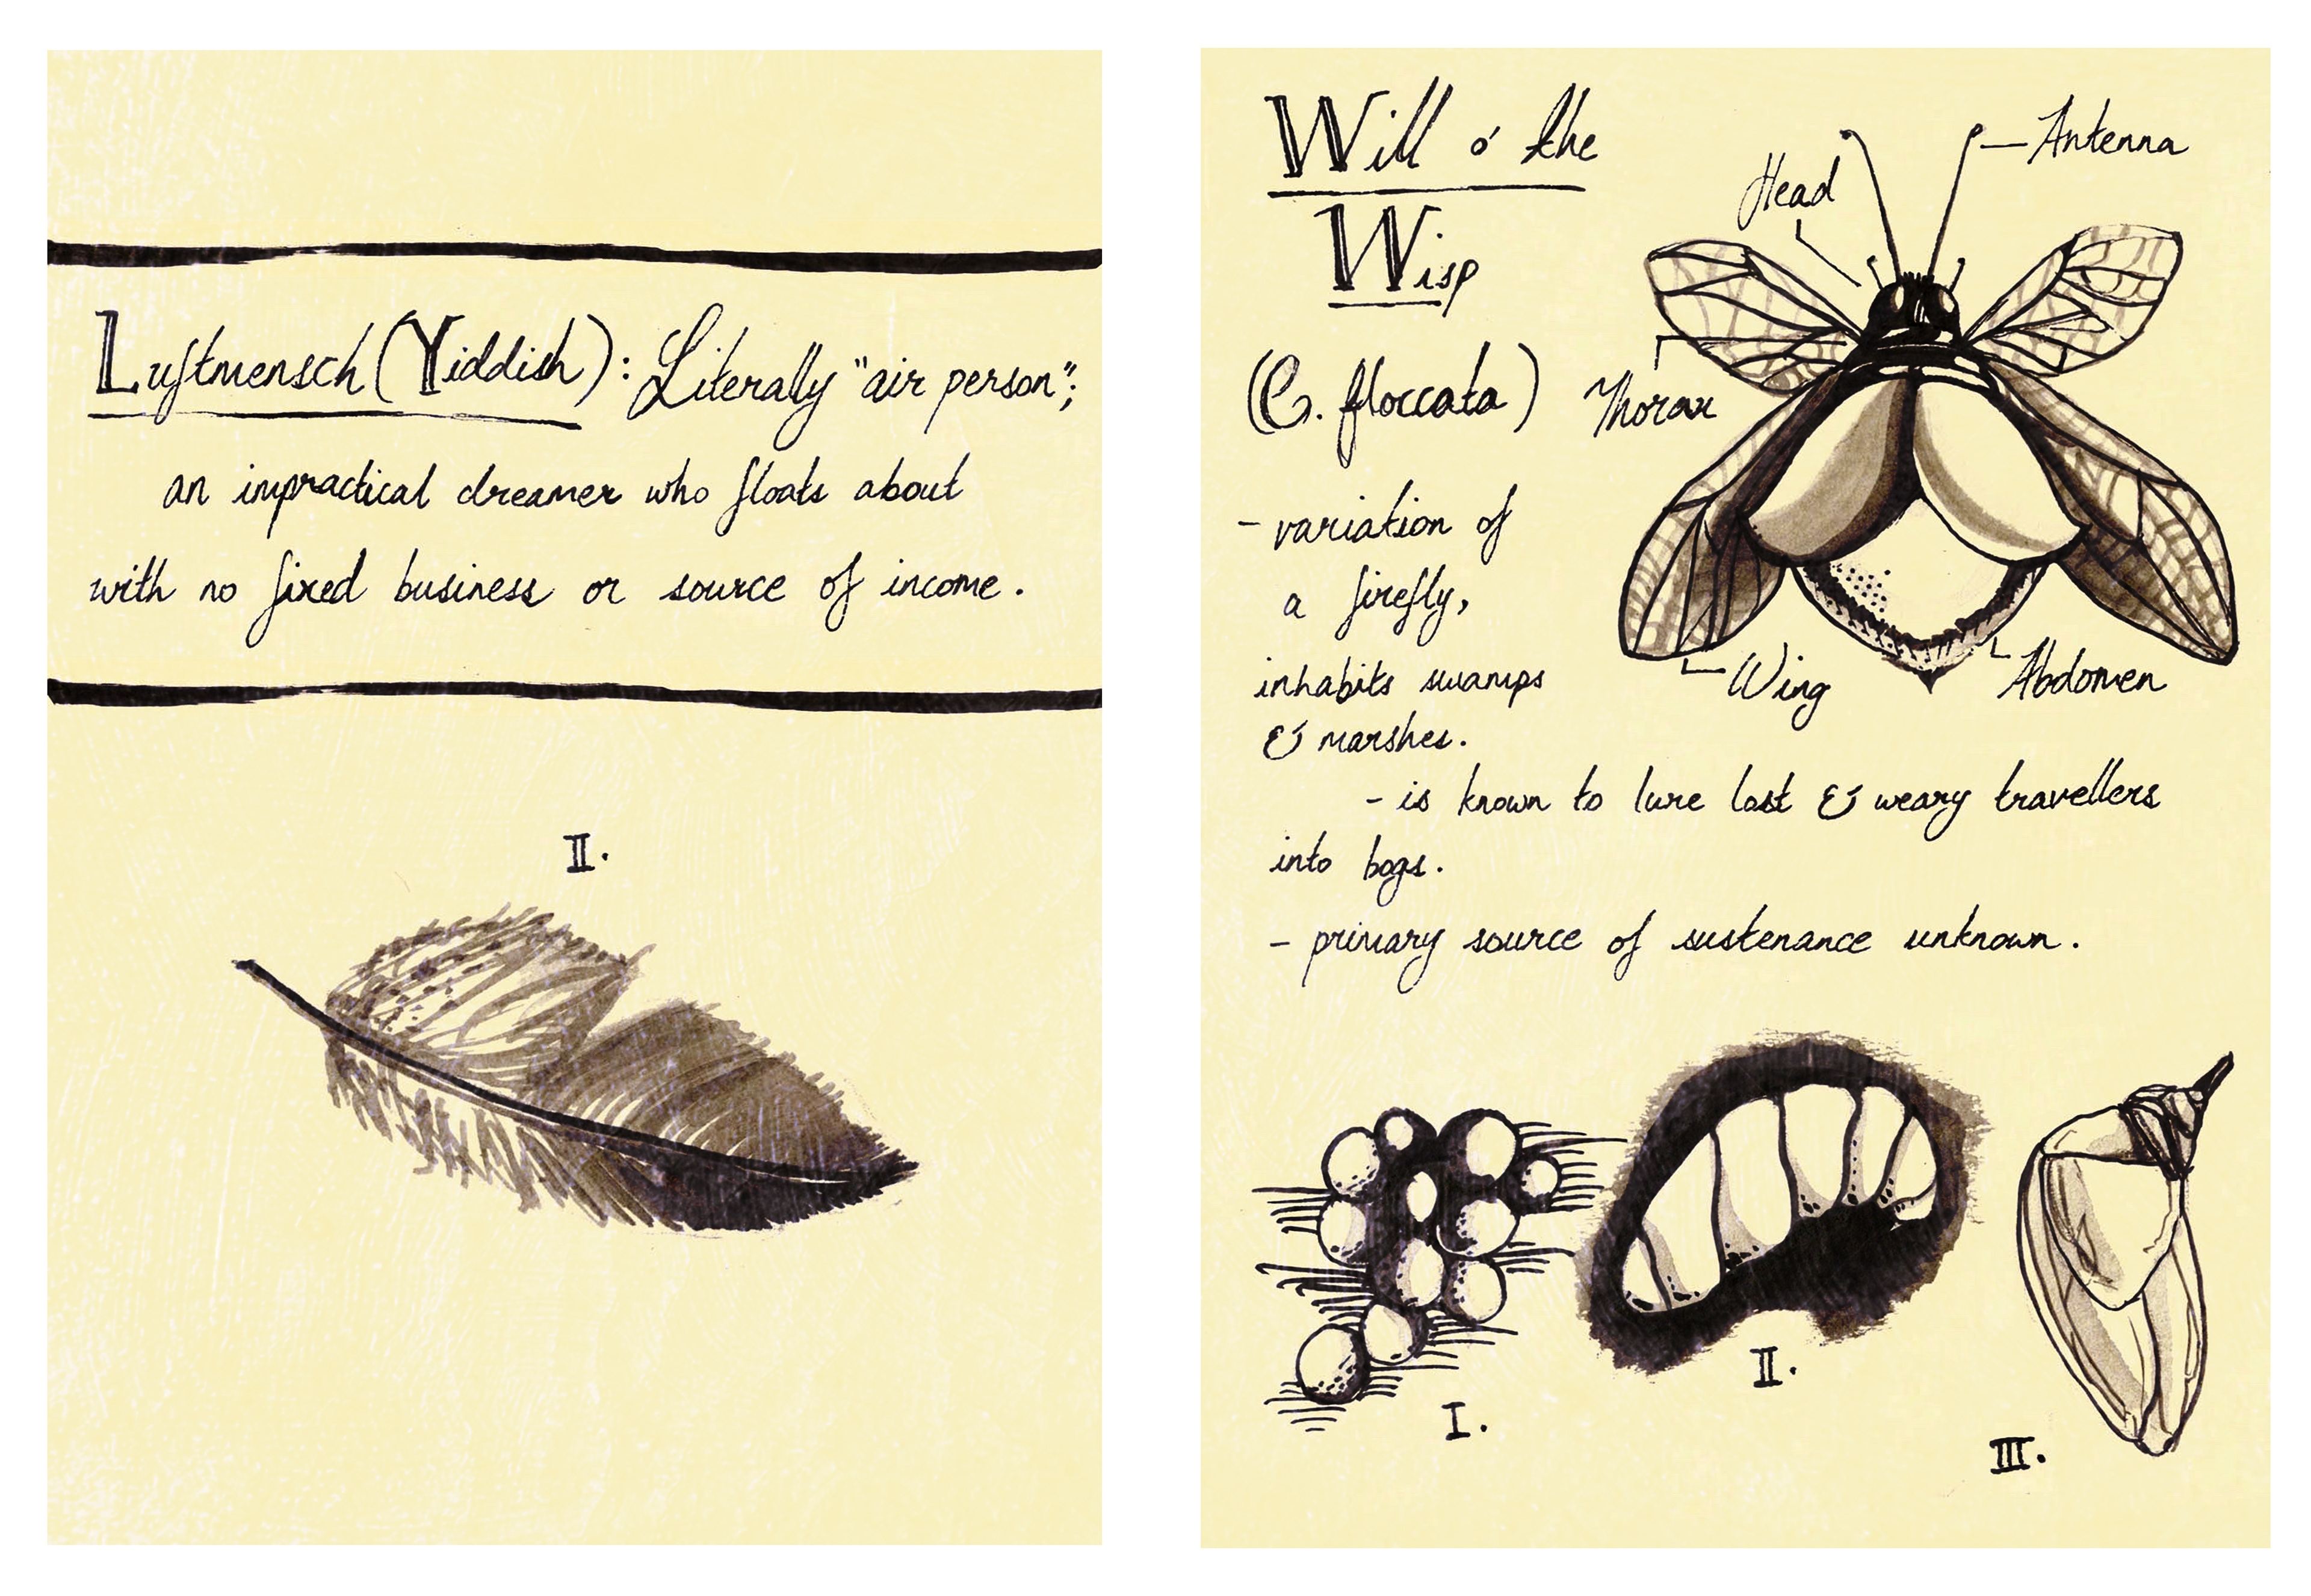 Luftmensch (Yiddish): Literally "air person";
an impractical dreamer who floats about
with no fixed business or source of income.
II.
Will o' the
Wisp
(C. floccata)
- variation of
a firefly,
inhabits swamps
& marshes.
- is known to lure lost & weary travellers
into bogs.
- primary source of sustenance unknown.
Antenna
Head
Thorax
Wing
Abdomen
I.
II.
III.